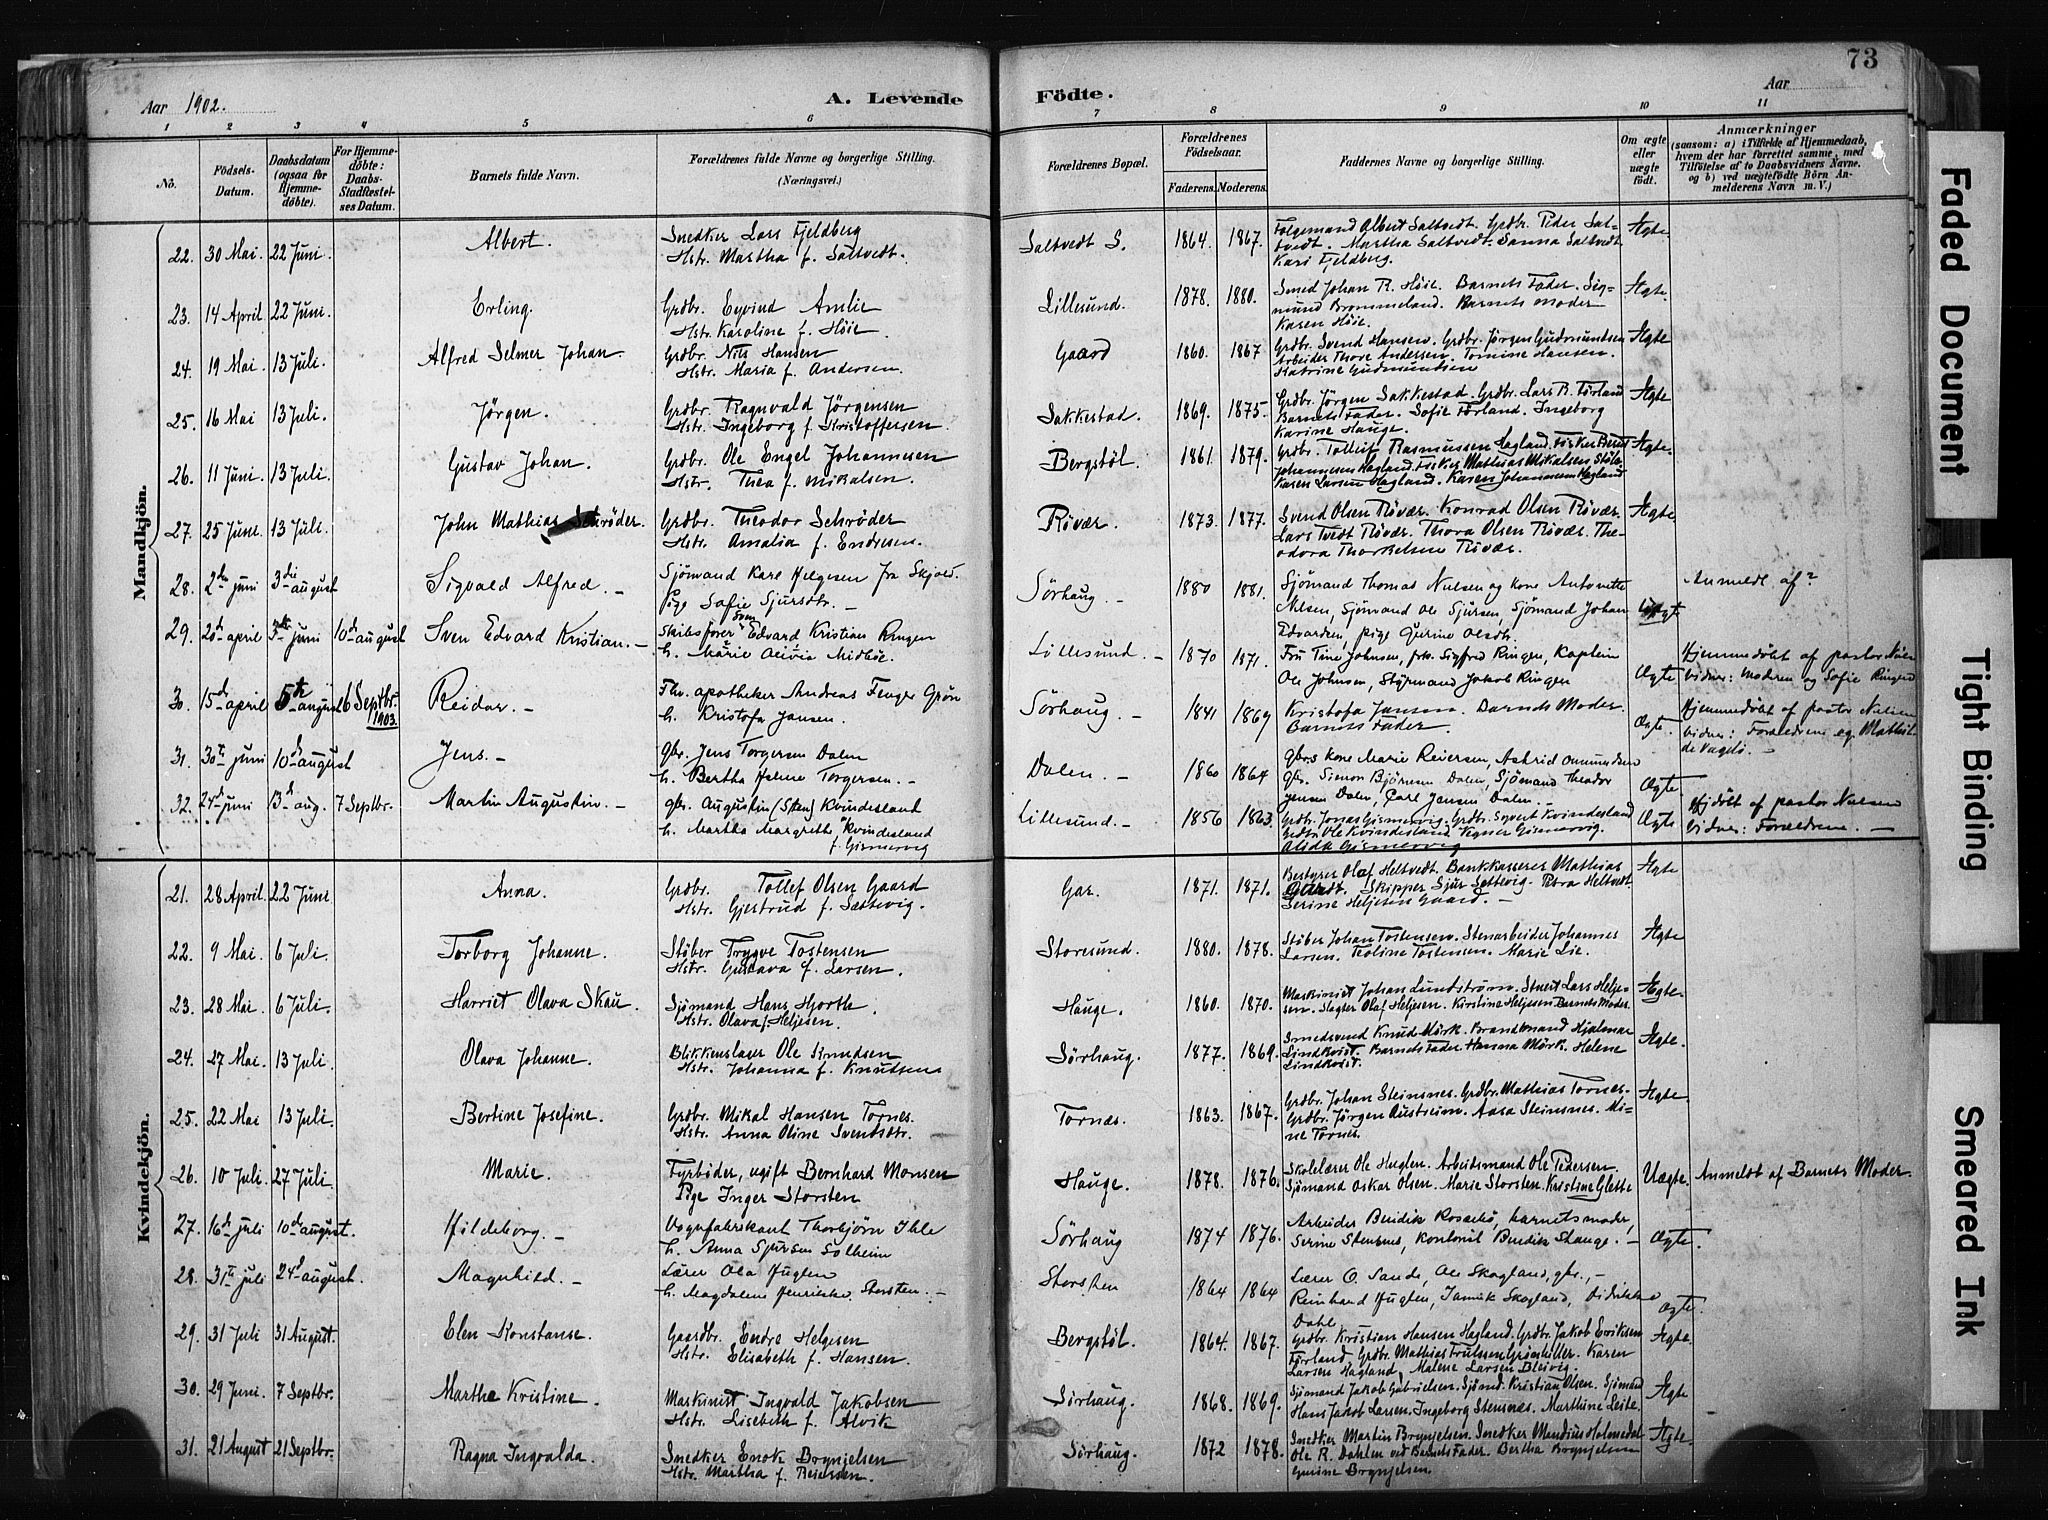 73
Aar 1902. A. Levende Födte. Aar
1 2 3 4 5 6 7 8 9 10 11
No. Födsels-Datum. Daabsdatum (ogsaa for Hjemmedöbte). For Hjemmedöbte: Daabs-Stadfæstelses Datum. Barnets fulde Navn. Forældrenes fulde Navne og borgerlige Stilling. (Næringsvei.) Forældrenes Bopæl. Forældrenes Födselsaar. Faderens. Moderens. Faddernes Navne og borgerlige Stilling. Om ægte eller uægte födt. Anmærkninger (saasom: a) i Tilfælde af Hjemmedaab, hvem der har forrettet samme, med Tilföielse af to Daabsvidners Navne. og b) ved uægtefödte Börn Anmelderens Navn m. V.)
Mandkjön.
22. 30 Mai. 22 Juni. Albert. Snedker Lars Fjeldberg Hstr. Martha f. Saltvedt. Saltvedt S. 1864. 1867. Følgemand Albert Saltvedt. Grdbr. Peder Saltvedt. Martha Saltvedt. Sanna Saltvedt Kari Fjeldberg. Ægte
23. 14 April. 22 Juni. Erling. Grdbr. Eyvind Amlie Hstr. Karoline f. Høie. Lillesund. 1878. 1880. Smed Johan R. Høie. Barnets Fader. Sigmund Brommeland. Barnets Moder Karen Høie. Ægte.
24. 19 Mai. 13 Juli. Alfred Selmer Johan. Grdbr. Nils Hansen Hstr. Maria f. Andersen. Gaard 1860. 1867 Grdbr. Svend Hansen. Grdbr. Jørgen Gudmundsen Arbeider Thore Andersen. Tomine Hansen. Katrine Gudmundsen Ægte
25. 16 Mai 13 Juli. Jörgen. Grdbr. Ragnvald Jörgensen Hstr. Ingeborg f. Kristoffersen. Sakkestad. 1869. 1875. Grdbr. Jörgen Sakkestad. Grdbr. Lars B. Förland Barnets Fader. Sofie Förland. Ingeborg Karine Hauge. Ægte
26. 11 Juni. 13 Juli. Gustav Johan. Grdbr. Ole Engel Johannesen Hstr. Thea f. Mikalsen. Bergstöl. 1861. 1879. Grdbr. Tollef Rasmussen Hagland. Fisker Berut Johannesen Hagland. Fisker Mathias Mikalsen Karen Larsen Hagland. Karen Johannesen Hagland Ægte.
27. 25 Juni. 13 Juli. John Mathias Schröder. Grdbr. Theodor Schröder Hstr. Amalia f. Endresen. Rövær. 1873. 1877. Svend Olsen Rövær. Konrad Olsen Rövær. Lars Tvedt Rövær. Thora Olsen Rövær. Theodora Thorkelsen Rövær. Ægte
28. 2den juni 3die august Sigvald Alfred. Sjömand Karl Helgesen fra Skjold. Pige Sofie Sjursdtr. Sörhaug. 1880 1881. Sjömand Thomas Nielsen og kone Antonette Nilsen, Sjömand Ole Sjursen, Sjömand Johan Edvardsen, pige Gurine Olsdtr. Uægte Anmeldt af?
29. 20de april 5te juni 10de august Sven Edvard Kristian. Skibsförer Sven Edvard Kristian Ringen h. Marie Olivia Midböe. Lillesund. 1870 1871. Fru Tine Johnsen, frk. Sigfred Ringen, Kaptein Ole Johnsen, Styrmand Jakob Ringen Ægte Hjemmedöbt af pastor Nilsen Vidner: Moderen og Sofie Ringen
30. 15de april 5te august 6 Septbr. 1903. Reidar. Fhv. apotheker Andreas Fenger Grön h. Kristofa Jansen. Sörhaug. 1841 1869 Kristofa Jansen. Barnets Moder. Barnets Fader. Ægte. Hjemmedöbt af pastor Nilsen Vidner: Forældrene og Mathilde Vageli.
31. 30te juni 10de august Jens. Gbr. Jens Torgersen Dalen h. Bertha Helene Torgersen. Dalen. 1860 1864 Gbrs kone Marie Reiersen, Astrid Omundsen gbr. Simon Björnsen Dalen, Sjömand Theodor Jensen Dalen, Carl Jansen Dalen. Ægte
32. 24de juni 13de aug. 7 Septbr. Martin Augustin. Gbr. Augustin (Sten) Kvindesland h. Martha Margrethe Kvindesland f. Gismervig Lillesund. 1856 1863. Grdbr. Jonas Gismervig. Grdbr. Syvert Kvindesland Grdbr. Ole Kvindesland. Vigner Gismervig. Alida Gismervig Ægte Hjdöbt af pastor Nielsen Vidner: Forældrene.
Kvindekjön.
21. 28 April. 22 Juni Anna. Grdbr. Tollef Olsen Gaard Hstr. Gjertrud f. Sættevig. Gar. 1871. 1871. Bestyrer Olaf Heltvedt. Bankkasserer Mathias Skipper Sjur Settevig. Petra Heltvedt Serine Heljesen Gaard. Ægte
22. 9 Mai. 6 Juli. Torborg Johanne. Støber Trygve Tostensen Hstr. Gustava f. Larsen. Storesund. 1880. 1878. Støber Johan Tostensen. Stenarbeider Johannes Larsen. Teoline Tostensen. Marie Lie. Ægte
23. 28 Mai. 6 Juli. Harriet Olava Skau. Sjömand Hans Hjorth. Hstr. Olava f. Heljesen. Hauge. 1860. 1870. Maskinist Johan Lundström. Stuert Lars Heljesen. Slagter Olaf Heljesen. Kirstine Heljesen Barnets Moder. Ægte.
24. 27 Mai. 13 Juli. Olava Johanne. Blikkenslager Ole Knudsen Hstr. Johanna f. Knutsen Sörhaug. 1877. 1869. Smedsvend Knud Mörk. Brandmand Hjalmar Lindkvist. Barnets Fader. Hanna Mörk. Helene Lindkvist. Ægte.
25. 22 Mai 13 Juli. Bertine Josefine. Grdbr. Mikal Hansen Tornes. Hstr. Anna Oline Svendsdtr. Tornæs. 1863. 1867. Grdbr. Johan Steinsnes. Grdbr. Mathias Tornes. Grdbr. Jörgen Austreim. Aasa Steinsnes. Mine Tornes. Ægte.
26. 10 Juli. 27 Juli. Marie. Fyrböder, ugift Bernhard Monsen Pige Inger Storsten Hauge. 1878. 1876. Skolelærer Ole Huglen. Arbeidsmand Ole Pedersen. Sjömand Oskar Olsen. Marie Storsten. Kristine Glette Uægte. Anmeldt af Barnets Moder.
27. 16de juli 10de august. Hildeborg. Vognfabrikant Thorbjörn Ihle h. Anna Sjursen Solheim Sörhaug 1874 1876. Arbeider Bendik Rossebö, barnets moder, Serine Stensnes, kontorist Bendik Stange. Ægte.
28. 31te juli 24de august. Magnhild. Lærer Ola Huglen h. Magdalene Henrikke Storsten. Storsten 1864 1864 Lærer O. Sande, Ole Skogland, gbr., Reinhard Huglen, Jannik Skogland, Didrikke Dahl. Ægte.
29. 31 Juli 31 August. Elen Konstanse. Gaardbr. Endre Helgesen Hstr. Elisabeth f. Hansen. Bergstöl. 1864. 1867. Grdbr. Kristian Hansen Hagland. Grdbr. Jakob Eriksen Förland. Grdbr. Mathias Trulssen. Karen Larsen Hagland. Malene Larsen Bleivig. Ægte.
30. 29 Juni. 7 Septbr. Martha Kristine. Maskinist Ingvald Jakobsen Hstr. Lisebeth f. Alvik Sörhaug. 1868. 1869. Sjömand Jakob Gabrielsen. Sjömd. Kristian Olsen. Sjömand Hans Jakob Larsen. Ingeborg Stensnæs. Marthine Leite. Ægte
31. 21 August 21 Septbr. Ragna Ingvalda. Snedker Enok Brynjelsen Hstr. Martha f. Reiersen. Sörhaug. 1872 1878. Snedker Martin Brynjelsen. Snedker Mandius Holmedal. Ole R. Dahlen ved Barnets Fader. Bertha Brynjelsen Gurine Brynjelsen. Ægte.
Faded Document
Tight Binding
Smeared Ink